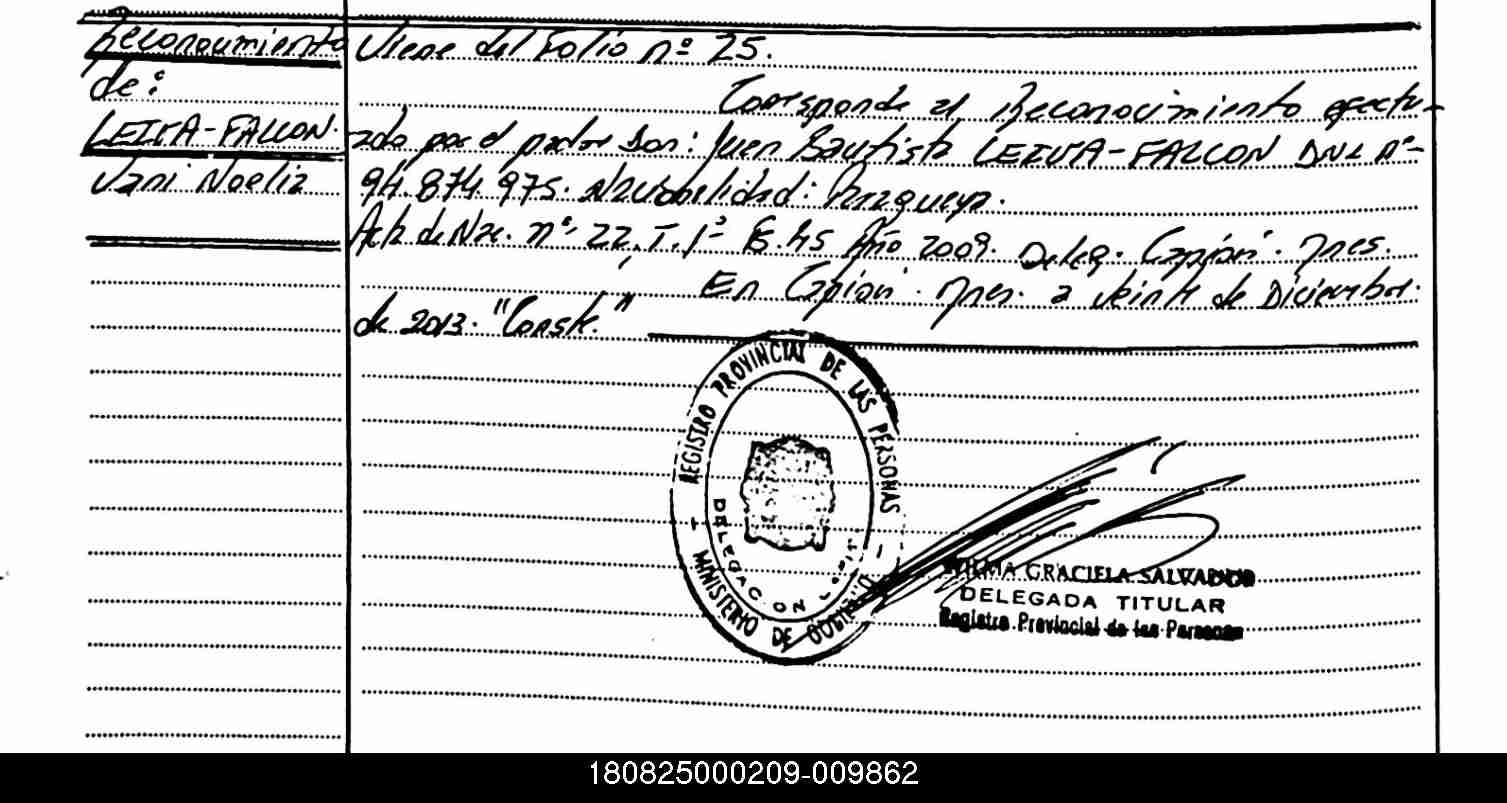 Reconocimiento
de:
LEIVA-FALCON.
Yani Noelia
Viene del Folio nº 25.
Corresponde al Reconocimiento efectu-
ado por el padre Don: Juan Bautista LEIVA-FALCON DNI nº-
94.874.975. Nacionalidad: Paraguaya.
Acta de Nac. nº 22, T. 1º Fs. 45 Año 2009. Deleg. Capiovi. Mnes.
En Capiovi. Mnes. a veinte de Diciembre.
de 2013. "Conste."
REGISTRO PROVINCIAL DE LAS PERSONAS
- MINISTERIO DE GOBIERNO -
DELEGACION
WILMA GRACIELA SALVADOR
DELEGADA TITULAR
Registro Provincial de las Personas
180825000209-009862